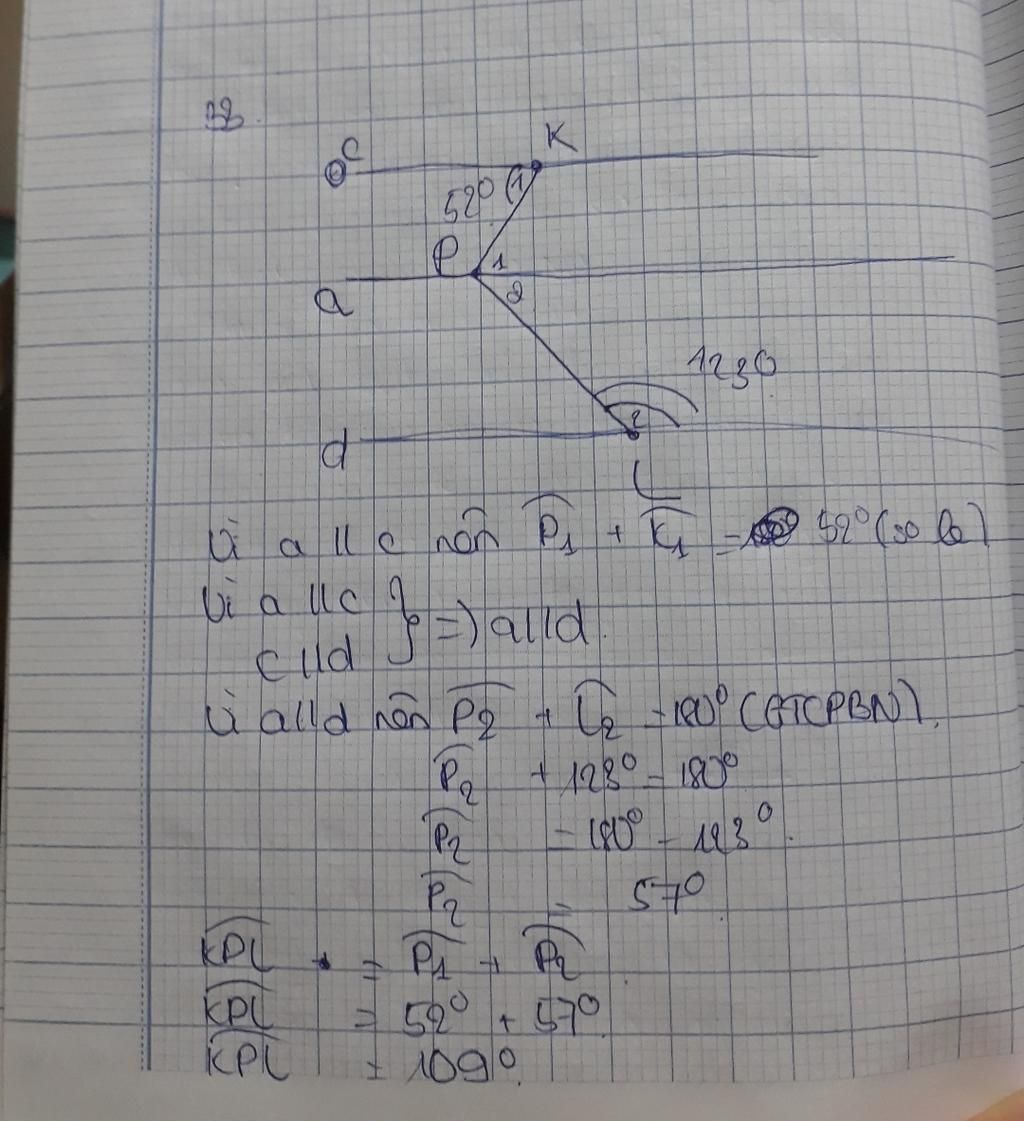 c K
52° 1
P 1
a 2
123°
2
d
L
Vì a // c nên P̂1 + K̂1 = 52° (so le)
Vì a // c
c // d } => a // d.
Vì a // d nên P̂2 + L̂2 = 180° (GTCPBN).
P̂2 + 123° = 180°
P̂2 = 180° - 123°.
P̂2 = 57°
KPL = P̂1 + P̂2
KPL = 52° + 57°.
KPL = 109°.